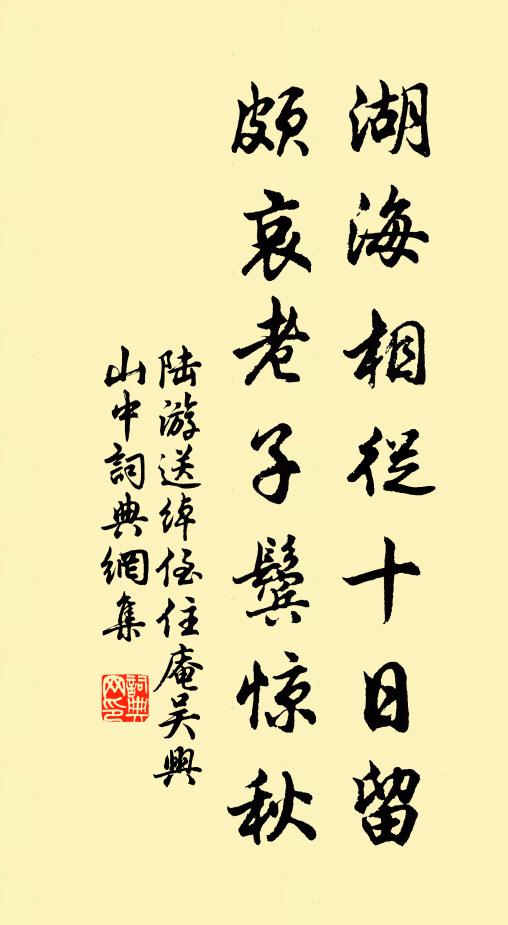 湖海相從十日留
頗哀老子鬢惊秋
陆游送绰侄住庵吴興
山中詞典網集
詞典
网印